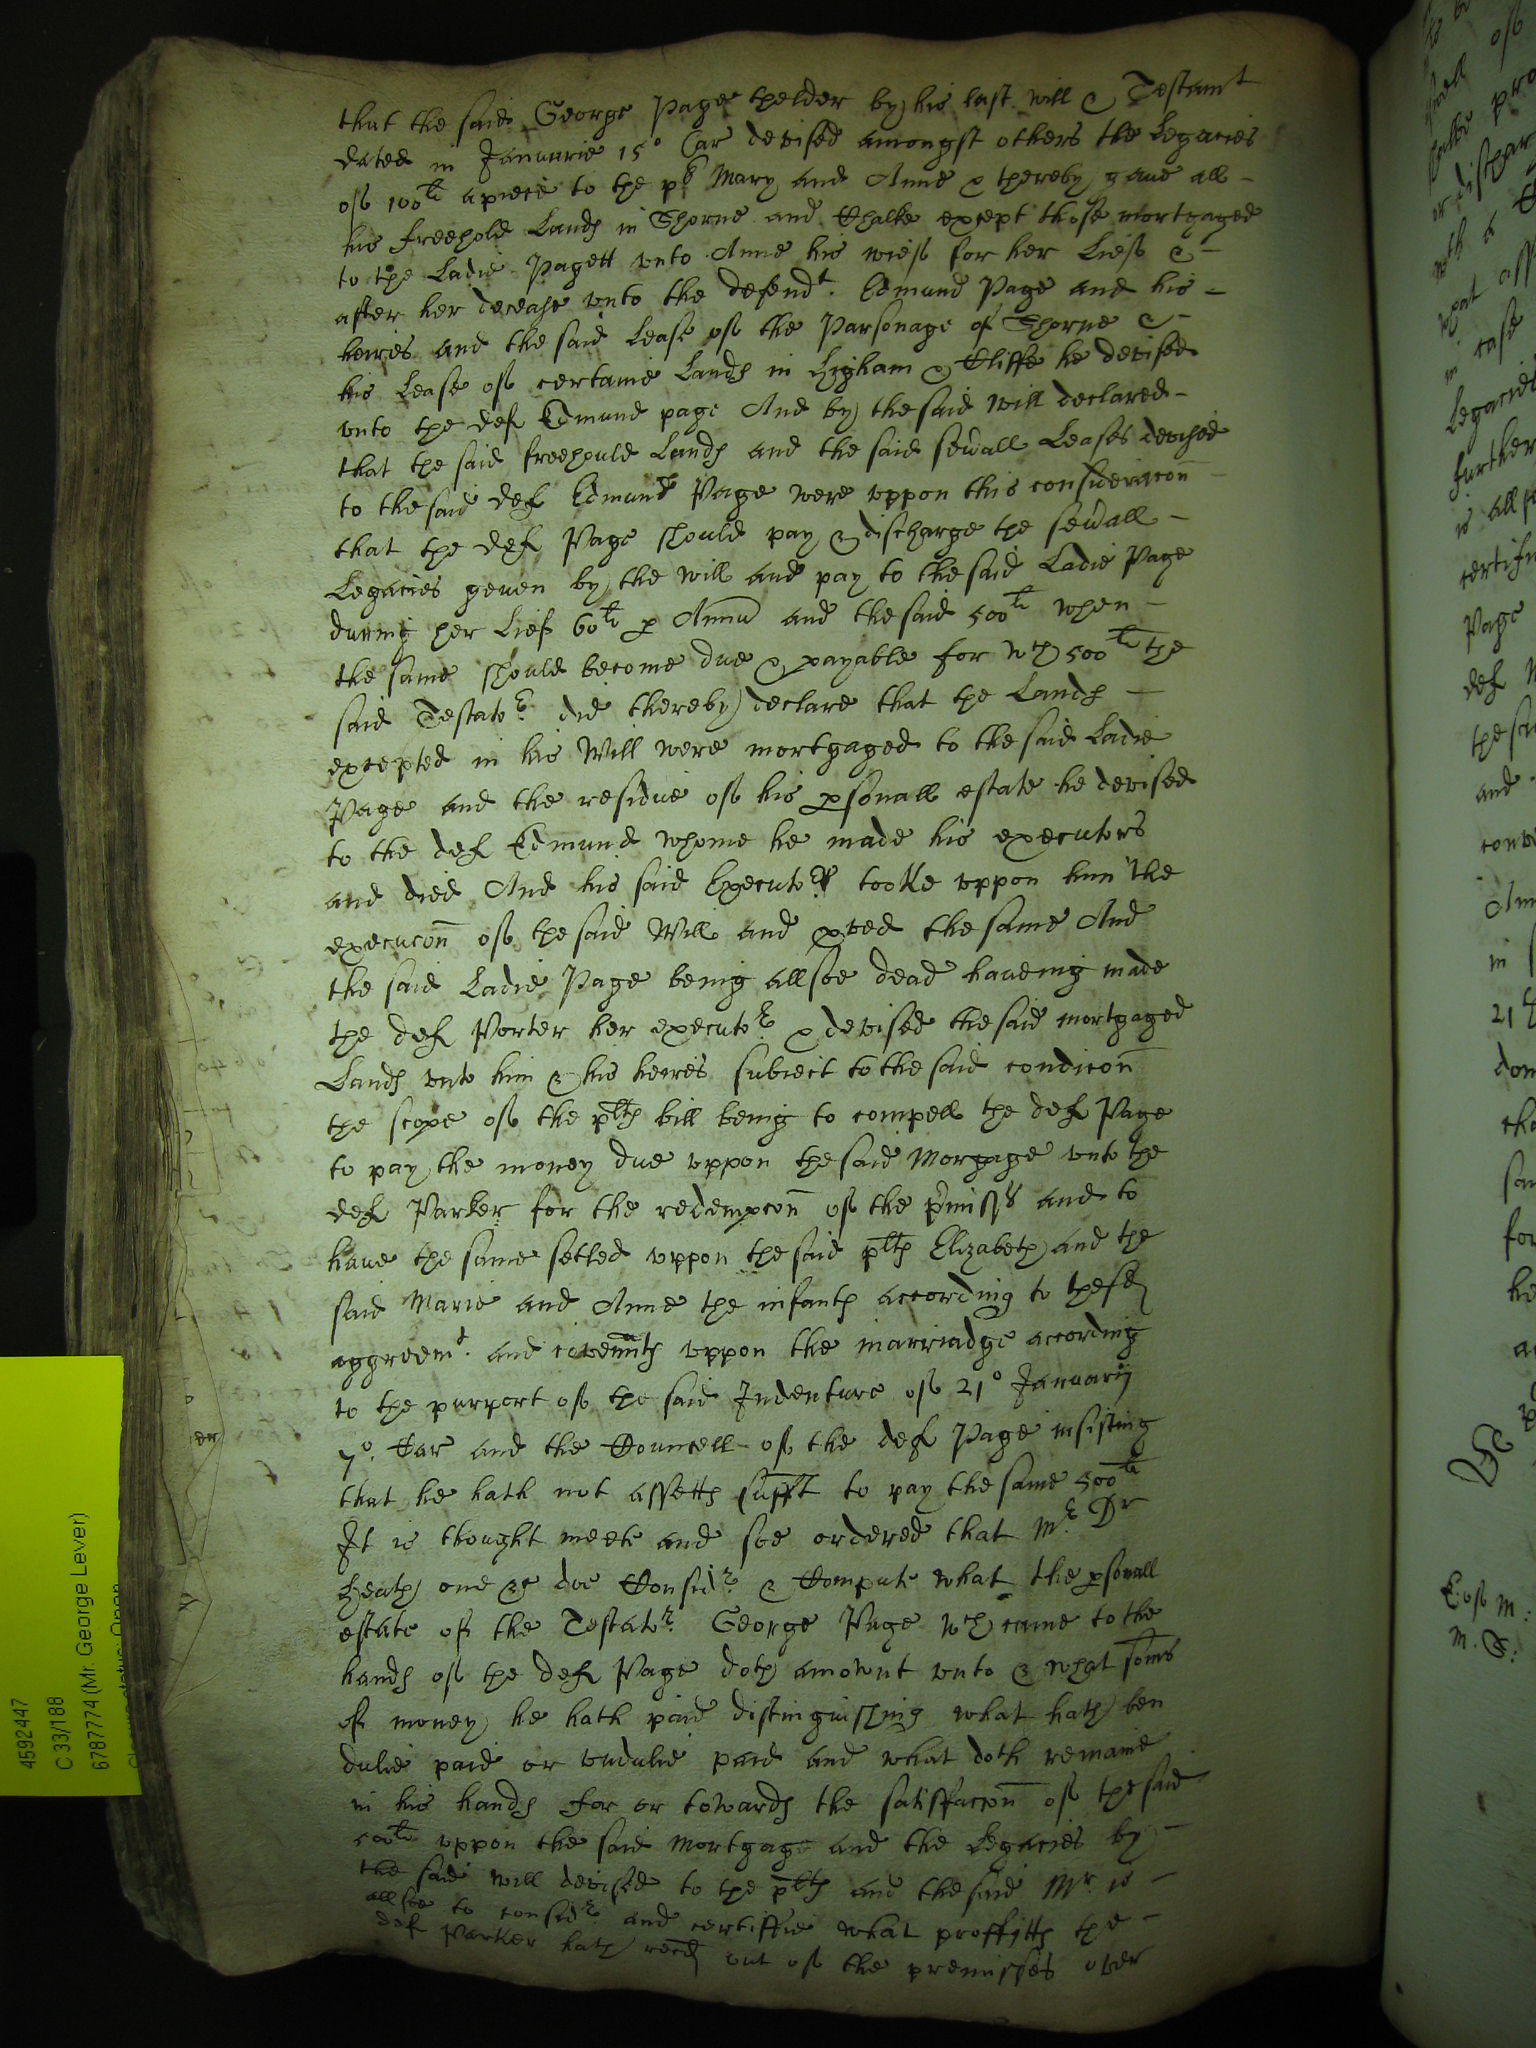 that the said George Page thelder by his last will & Testamt
dated in Januarie 15o Car devised amongst others the Legacies
of 100li apiece to the plt Mary and Anne & thereby gave all -
his freehold Lands in Shorne and Chalke except those mortgaged
to the Ladie Pagett unto Anne his wief for her Lief & -
after her decease unto the defendt. Edmund Page and his -
heires and the said Lease of the Parsonage of Shorne & -
his Lease of certaine Lands in Higham & Cliffe he devised
unto the def Edmund page And by the said will declared -
that the said freehould Lands and the said sevall Leases devised
to the said def Edmund Page were uppon this consideracon -
that the def Page should pay & discharge the sevall -
Legacies geven by the will and pay to the said Ladie Page
during her Lief 60li p Annu and the said 500li when -
the same should become due & payable for wch 500li the
said Testator did thereby declare that the Lands -
excepted in his Will were mortgaged to the said Ladie
Page and the residue of his psonall estate he devised
to the def Edmund whome he made his executors
and died And his said Executor tooke uppon him the
execucon of the said Will and pved the same And
the said Ladie Page being allsoe dead haveing made
the def Porter her executor & devised the said mortgaged
Lands unto him & his heires subiect to the said condicon
the scope of the plts bill being to compell the def Page
to pay the money due uppon the said Morgage unto the
def Parker for the redempcon of the pmisses and to
have the same setled uppon the said plts Elizabeth and the
said Marie and Anne the infants according to these
aggreemt. and covennts uppon the marriadge according
to the purport of the said Indenture of 21o Januarij
7o. Car and the Councell of the def Page insisting
that he hath not assetts sufft to pay the same 500li
It is thought meete and soe ordered that Mr Dr
Heath one &c doe Considr & Compute what the psonall
estate of the Testator George Page wch came to the
hands of the def Page doth amownt unto & what soms
of money he hath paid distinguishing what hath ben
dulie paid or undulie paid and what doth remaine
in his hands for or towards the satisfaccon of the said
500li uppon the said Mortgage and the Legacies by -
the said will devised to the plts and the said Mr. is -
allsoe to considr and certiffie what proffitts the -
def Parker hath recd out of the premisses over
4592447
C 33/188
6787774 (Mr. George Lever)